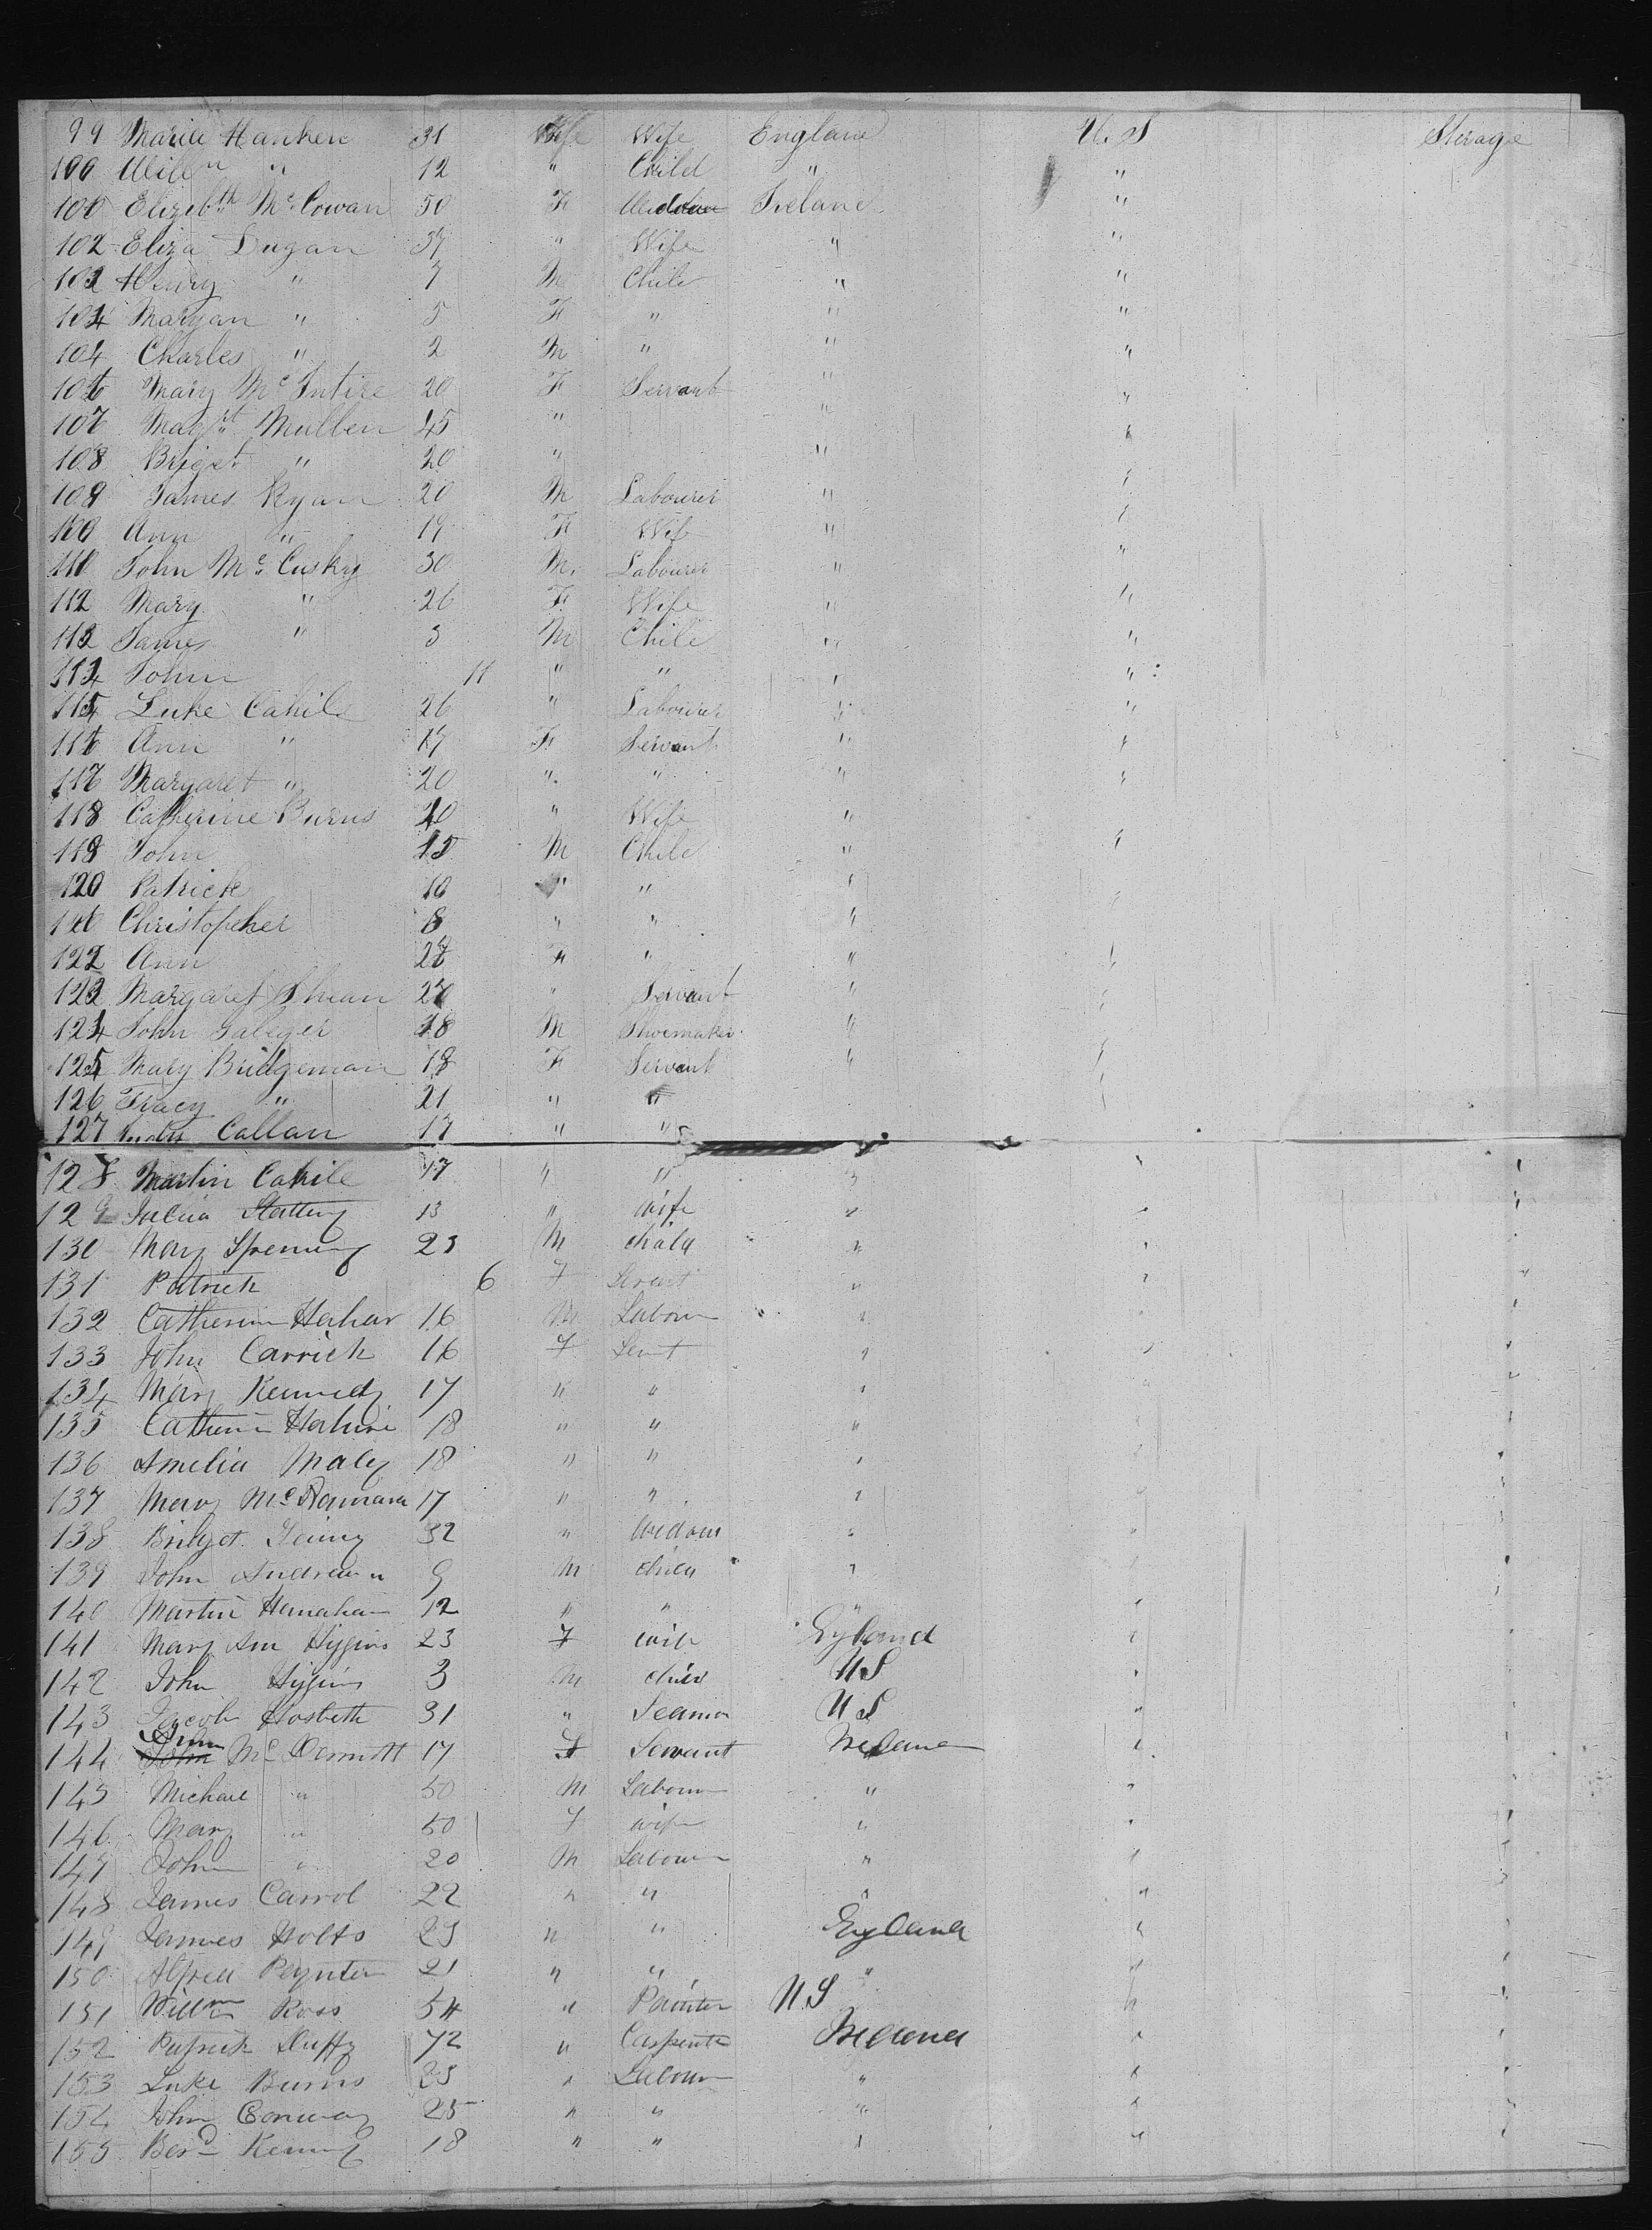 99 Marie Hanken 31 Wife Wife England U.S Sterage
100 " 12 " Child " "
100 Elizabth Mc Cowan 50 F Ireland "
102 Eliza Dugan 37 " Wife " "
103 Henry " 7 M Child " "
104 Maryan " 5 F " " "
104 Charles " 2 M " " "
106 Mary Mc Intire 20 F Servant " "
107 Magrt Mullen 45 " " "
108 Briget " 20 " " "
109 James Ryan 20 M Labourer " "
Ann " 19 F Wife " "
John Mc Cusky 30 M. Labourer " "
112 Mary " 26 F Wife " "
113 James " 3 M Child " "
114 John 11 " " " "
115 Luke Cahill 26 " Labourer " "
116 Ann " 17 F Servant " "
117 Margaret " 20 " " " "
118 Catherine Burns 40 " Wife "
119 John 15 M Child " "
120 Patrick 10 " " "
Christopeher 8 " " " "
122 Ann F " " "
123 Margaret Shean " Servant " "
124 John Galeger 18 M Shoemaker " "
125 Mary Bridgeman 18 F Servant " "
126 Tracy " 21 " " "
127 Callan 17 " "
128 Martin Cahile 17 " " " " "
129 Julia Slattery 13 " wife " " "
130 Mary 23 M child " " "
131 Patrick 6 F Servant " " "
132 Catherin 16 M Labour " " "
133 John Carrick 16 F Servt " " "
134 Mary Kennedy 17 " " " " "
135 Catherin 18 " " " " "
136 Amelia Maly 18 " " " " "
137 Mary McNamara 17 " " " " "
138 Bridget 32 " Widow " " "
139 John Andrew " 9 M child " " "
140 Martin Hanahan 12 " " " " "
141 Mary Ann Higgins 23 F wife England " "
142 John Higgins 3 M child U S " "
143 Jacob Hosbeth 31 " Seaman U S " "
144 Ann Mc Dermott 17 F Servant Ireland " "
145 Michael " 50 M Labour " " "
146 Mary " 50 F wife " " "
147 John " 20 M Labour " " "
148 James Carrol 22 " " " " "
149 James Holts 23 " " England " "
150 Alfred Peynter 21 " " " " "
151 Willm Ross 54 " Painter U.S " "
152 Patrick Duffy 72 " Carpenter Ireland " "
153 Luke Burns 23 " Labour " " "
154 John Conway 25 " " " " "
155 Berd 18 " " " " "